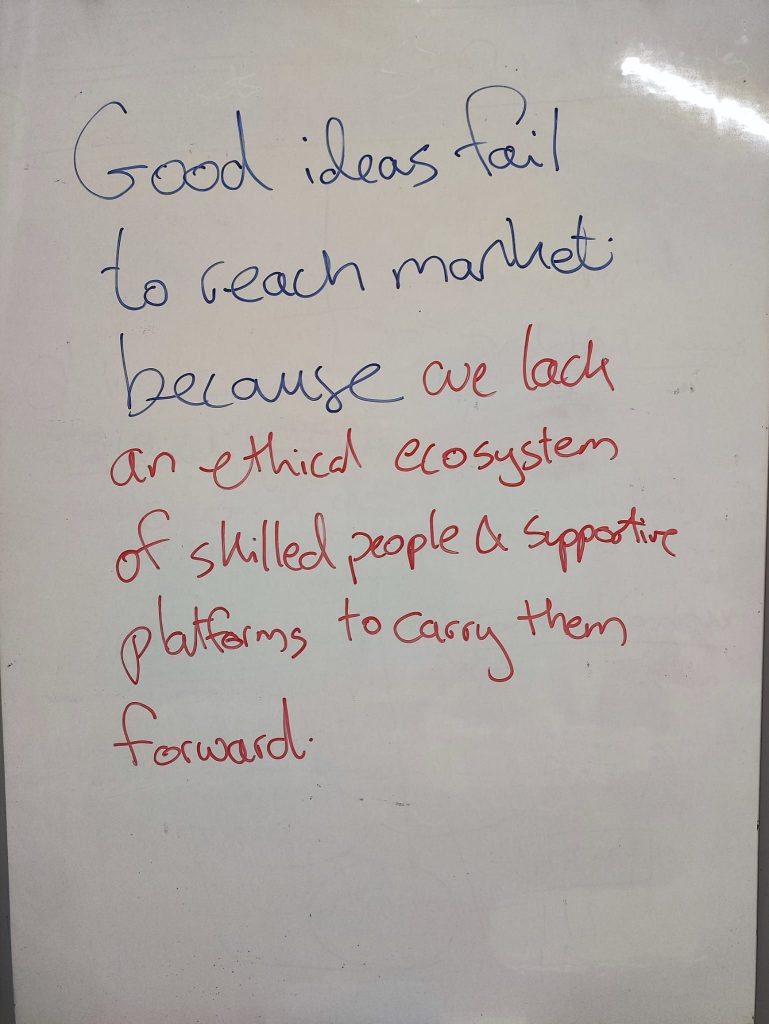 Good ideas fail
to reach market
because we lack
an ethical ecosystem
of skilled people & supportive
platforms to carry them
forward.